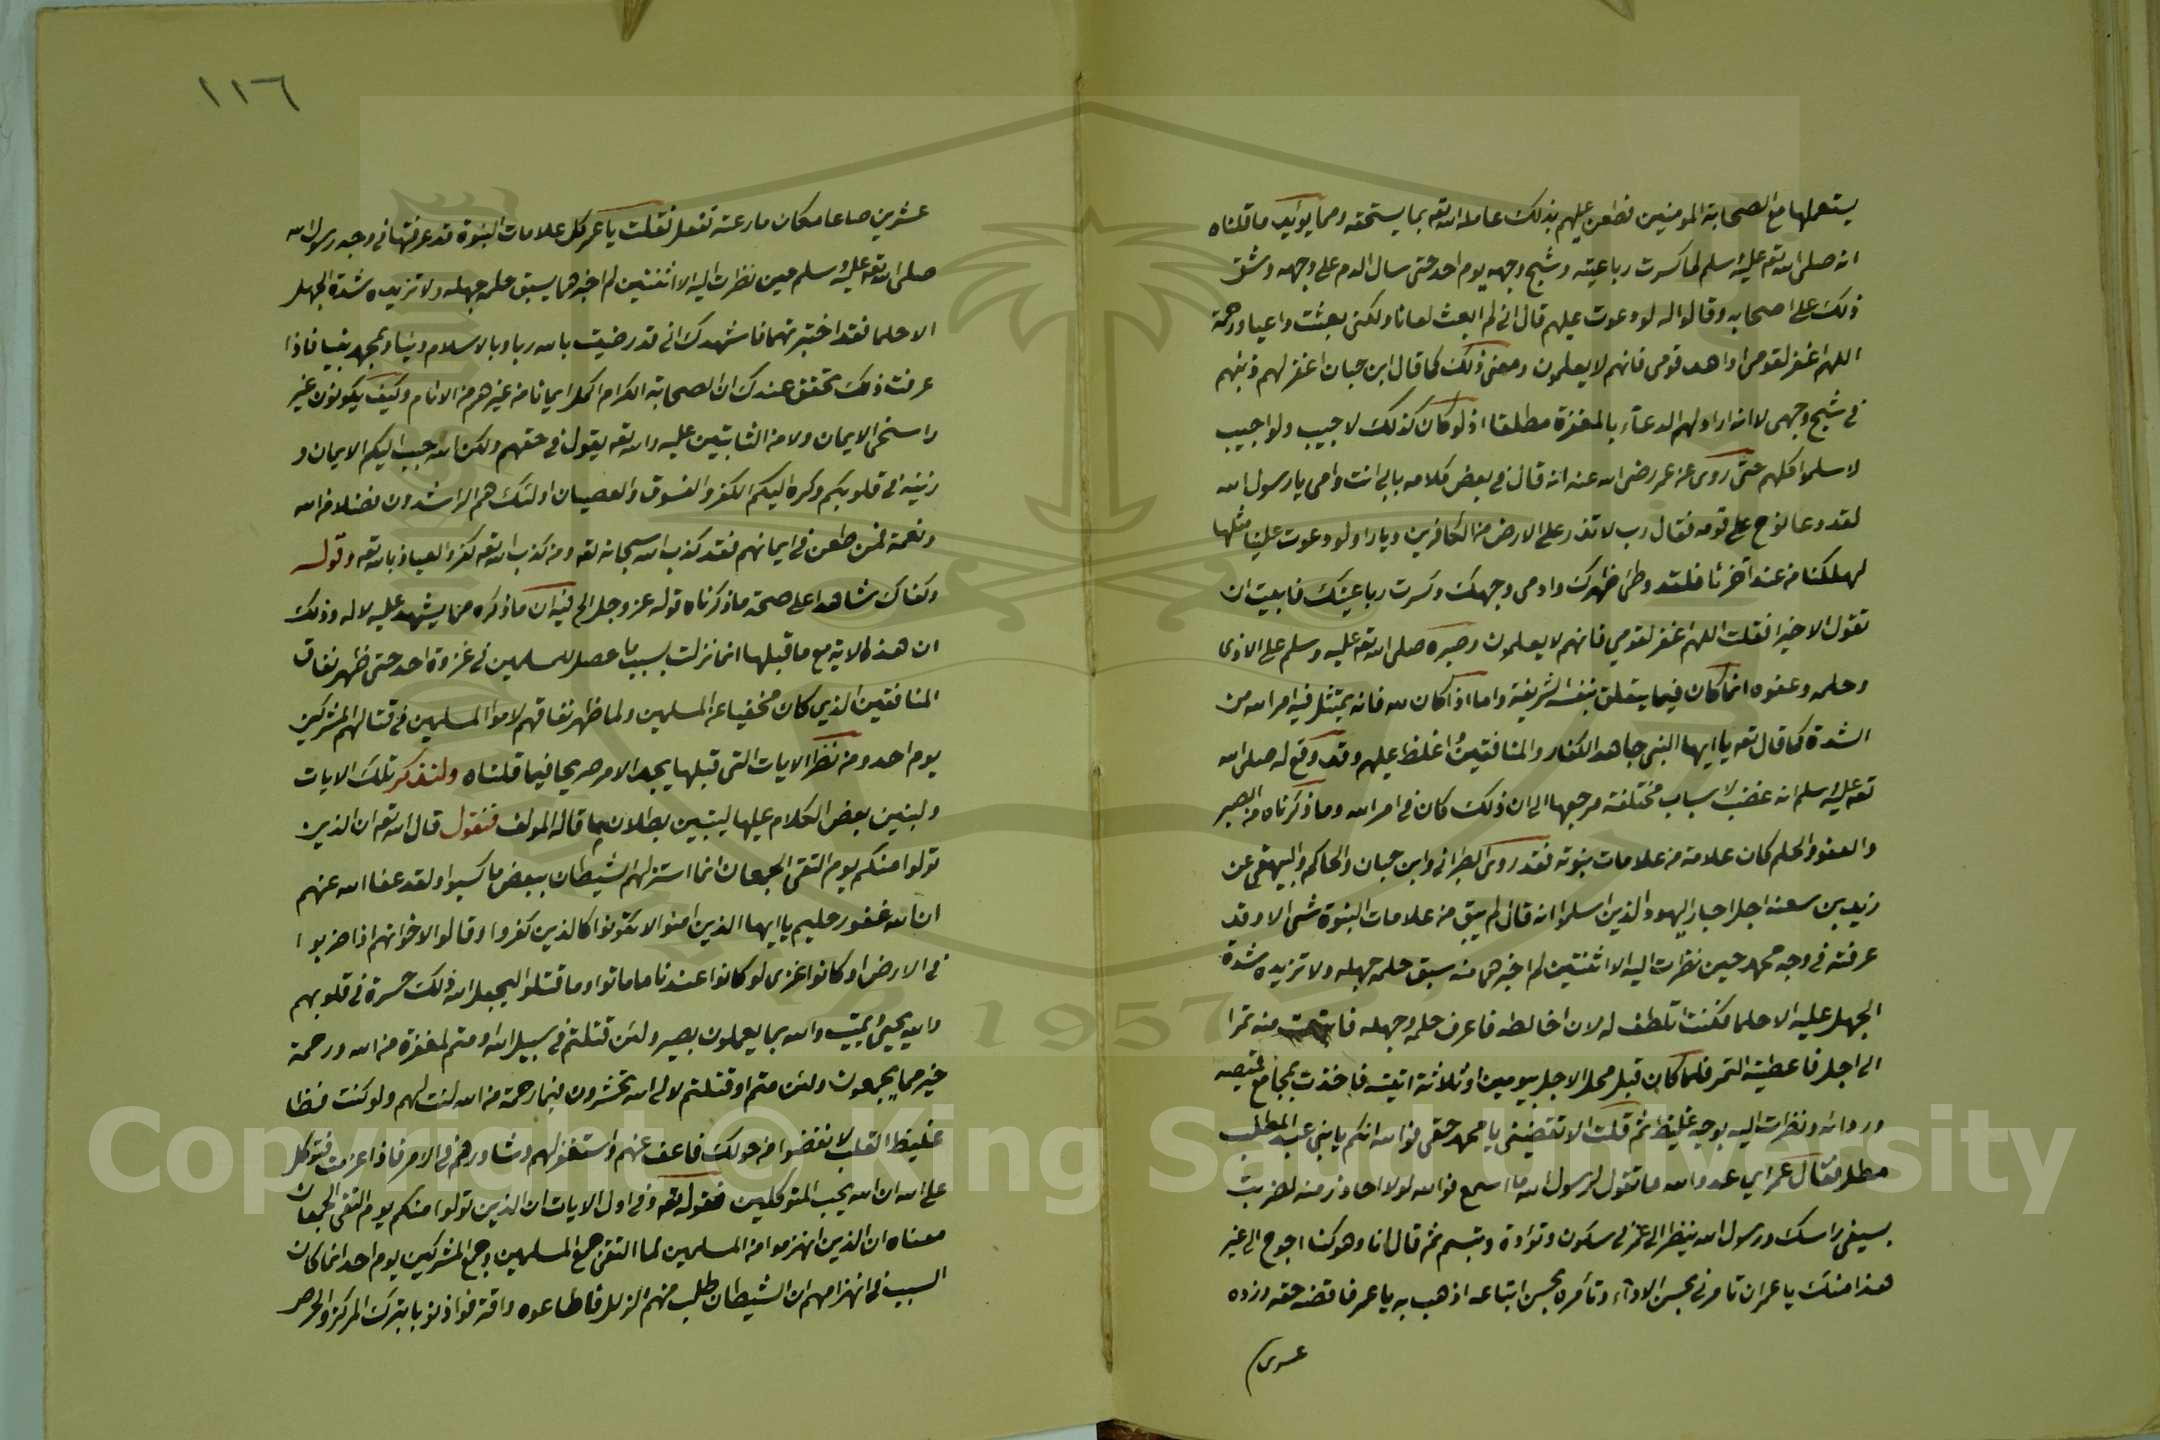 يستعملها مع الصحابة المومنين فطعن عليهم بذلك عامله الله تعه بما يستحقه ومما يؤيد ما قلناه
انه صلى الله تعه عليه وسلم لما كسرت رباعيته وشج وجهه يوم احد حتى سال الدم على وجهه وشق
ذلك على اصحابه وقالوا له لو دعوت عليهم قال اني لم ابعث لعانا ولكني بعثت داعيا ورحمة
اللهم اغفر لقومي او اهد قومي فانهم لا يعلمون ومعنى ذلك كما قال ابن حبان اغفر لهم ذنبهم
في شج وجهي لا انه اراد لهم الدعاء بالمغفرة مطلقا اذ لو كان كذلك لاجيب ولو اجيب
لاسلموا كلهم حتى روى عن عمر رضى الله عنه انه قال في بعض كلامه بابي انت وامي يا رسول الله
لقد دعا نوح على قومه فقال رب لا تذر على الارض من الكافرين ديارا ولو دعوت علينا مثلها
لهلكنا من عند آخرنا فلقد وطئ ظهرك وادمي وجهك وكسرت رباعيتك فابيت ان
تقول الا خيرا فقلت اللهم اغفر لقومي فانهم لا يعلمون وصبره صلى الله تعه عليه وسلم على الاذى
وحلمه وعفوه انما كان فيما يتعلق بنفسه الشريفة واما اذا كان لله فانه يمتثل فيه امر الله من
الشدة كما قال تعه يا ايها النبي جاهد الكفار والمنافقين واغلظ عليهم وقد وقع له صلى الله
تعه عليه وسلم انه غضب لاسباب مختلفة مرجعها الى ان ذلك كان في امر الله وما ذكرناه من الصبر
والعفو والحلم كان علامة من علامات نبوته فقد روى الطبراني وابن حبان والحاكم والبيهقي عن
زيد بن سعنه اجل احبار اليهود الذين اسلموا انه قال لم يبق من علامات النبوة شي الا وقد
عرفته في وجه محمد حين نظرت اليه الا اثنتين لم اخبرهما منه يسبق حلمه جهله ولا تزيده شدة
الجهل عليه الا حلما فكنت اتلطف له لان اخالطه فاعرف حلمه وجهله فابتعت منه تمرا
الى اجل فاعطيته الثمر فلما كان قبل محل الاجل بيومين او ثلاثة اتيته فاخذت بمجامع قميصه
وردائه ونظرت اليه بوجه غليظ ثم قلت الا تقضيني يا محمد حقي فوالله انكم يا بني عبد المطلب
مطل فقال عمر اي عدو الله ما تقول لرسول الله ما اسمع فوالله لولا احاذر منه لضربت
بسيفي راسك ورسول الله ينظر الى عمر في سكون وتؤدة وتبسم ثم قال انا وهو كنا احوج الى غير
هذا منك يا عمر ان تامرني بحسن الاداء وتأمره بحسن اتباعه اذهب به يا عمر فاقضه حقه وزده
عشرين
١١٦
عشرين صاعا مكان ما رعته ففعل فقلت يا عمر كل علامات النبوة قد عرفتها في وجه رسول الله
صلى الله تعه عليه وسلم حين نظرت اليه الا اثنتين لم اخبرهما يسبق حلمه جهله ولا تزيده شدة الجهل
الا حلما فقد اختبرتهما فاشهدك اني قد رضيت بالله ربا وبالاسلام دينا وبمحمد نبيا فاذا
عرفت ذلك تحقق عندك ان الصحابة الكرام اكمل ايمانا من غيرهم من الانام وكيف يكونون غير
راسخي الايمان ولا من الثابتين عليه والله تعه يقول في حقهم ولكن الله حبب اليكم الايمان و
زينه في قلوبكم وكره اليكم الكفر والفسوق والعصيان اولئك هم الراشدون فضلا من الله
ونعمة فمن طعن في ايمانهم فقد كذب الله سبحانه تعه ومن كذب الله تعه كفر والعياذ بالله تعه وقوله
وكفاك شاهدا على صحة ما ذكرناه قوله عز وجل الخ فيه ان ما ذكره مما يشهد عليه لا له وذلك
ان هذه الاية مع ما قبلها انما نزلت بسبب ما حصل للمسلمين في غزوة احد حتى ظهر نفاق
المنافقين الذي كان مخفيا عن المسلمين ولما ظهر نفاقهم لاموا المسلمين في قتالهم المشركين
يوم احد ومن نظر الايات التي قبلها يجد الامر صريحا فيما قلناه ولنذكر تلك الايات
ولنبين بعض الكلام عليها ليتبين بطلان ما قاله المولف فنقول قال الله تعه ان الذين
تولوا منكم يوم التقى الجمعان انما استزلهم الشيطان ببعض ما كسبوا ولقد عفا الله عنهم
ان الله غفور حليم يا ايها الذين امنوا لا تكونوا كالذين كفروا وقالوا لاخوانهم اذا ضربوا
في الارض او كانوا غزى لو كانوا عندنا ما ماتوا وما قتلوا ليجعل الله ذلك حسرة في قلوبهم
والله يحيي ويميت والله بما يعملون بصير ولئن قتلتم في سبيل الله او متم لمغفرة من الله ورحمة
خير مما يجمعون ولئن متم او قتلتم لالى الله تحشرون فبما رحمة من الله لنت لهم ولو كنت فظا
غليظ القلب لانفضوا من حولك فاعف عنهم واستغفر لهم وشاورهم في الامر فاذا عزمت فتوكل
على الله ان الله يحب المتوكلين فقوله تعه في اول الايات ان الذين تولوا منكم يوم التقى الجمعان
معناه ان الذين انهزموا من المسلمين لما التقى جمع المسلمين وجمع المشركين يوم احد انما كان
السبب في انهزامهم ان الشيطان طلب منهم الزلل فاطاعوه واقترفوا ذنوبا بترك المركز والحرص
Copyright © King Saud University
1957